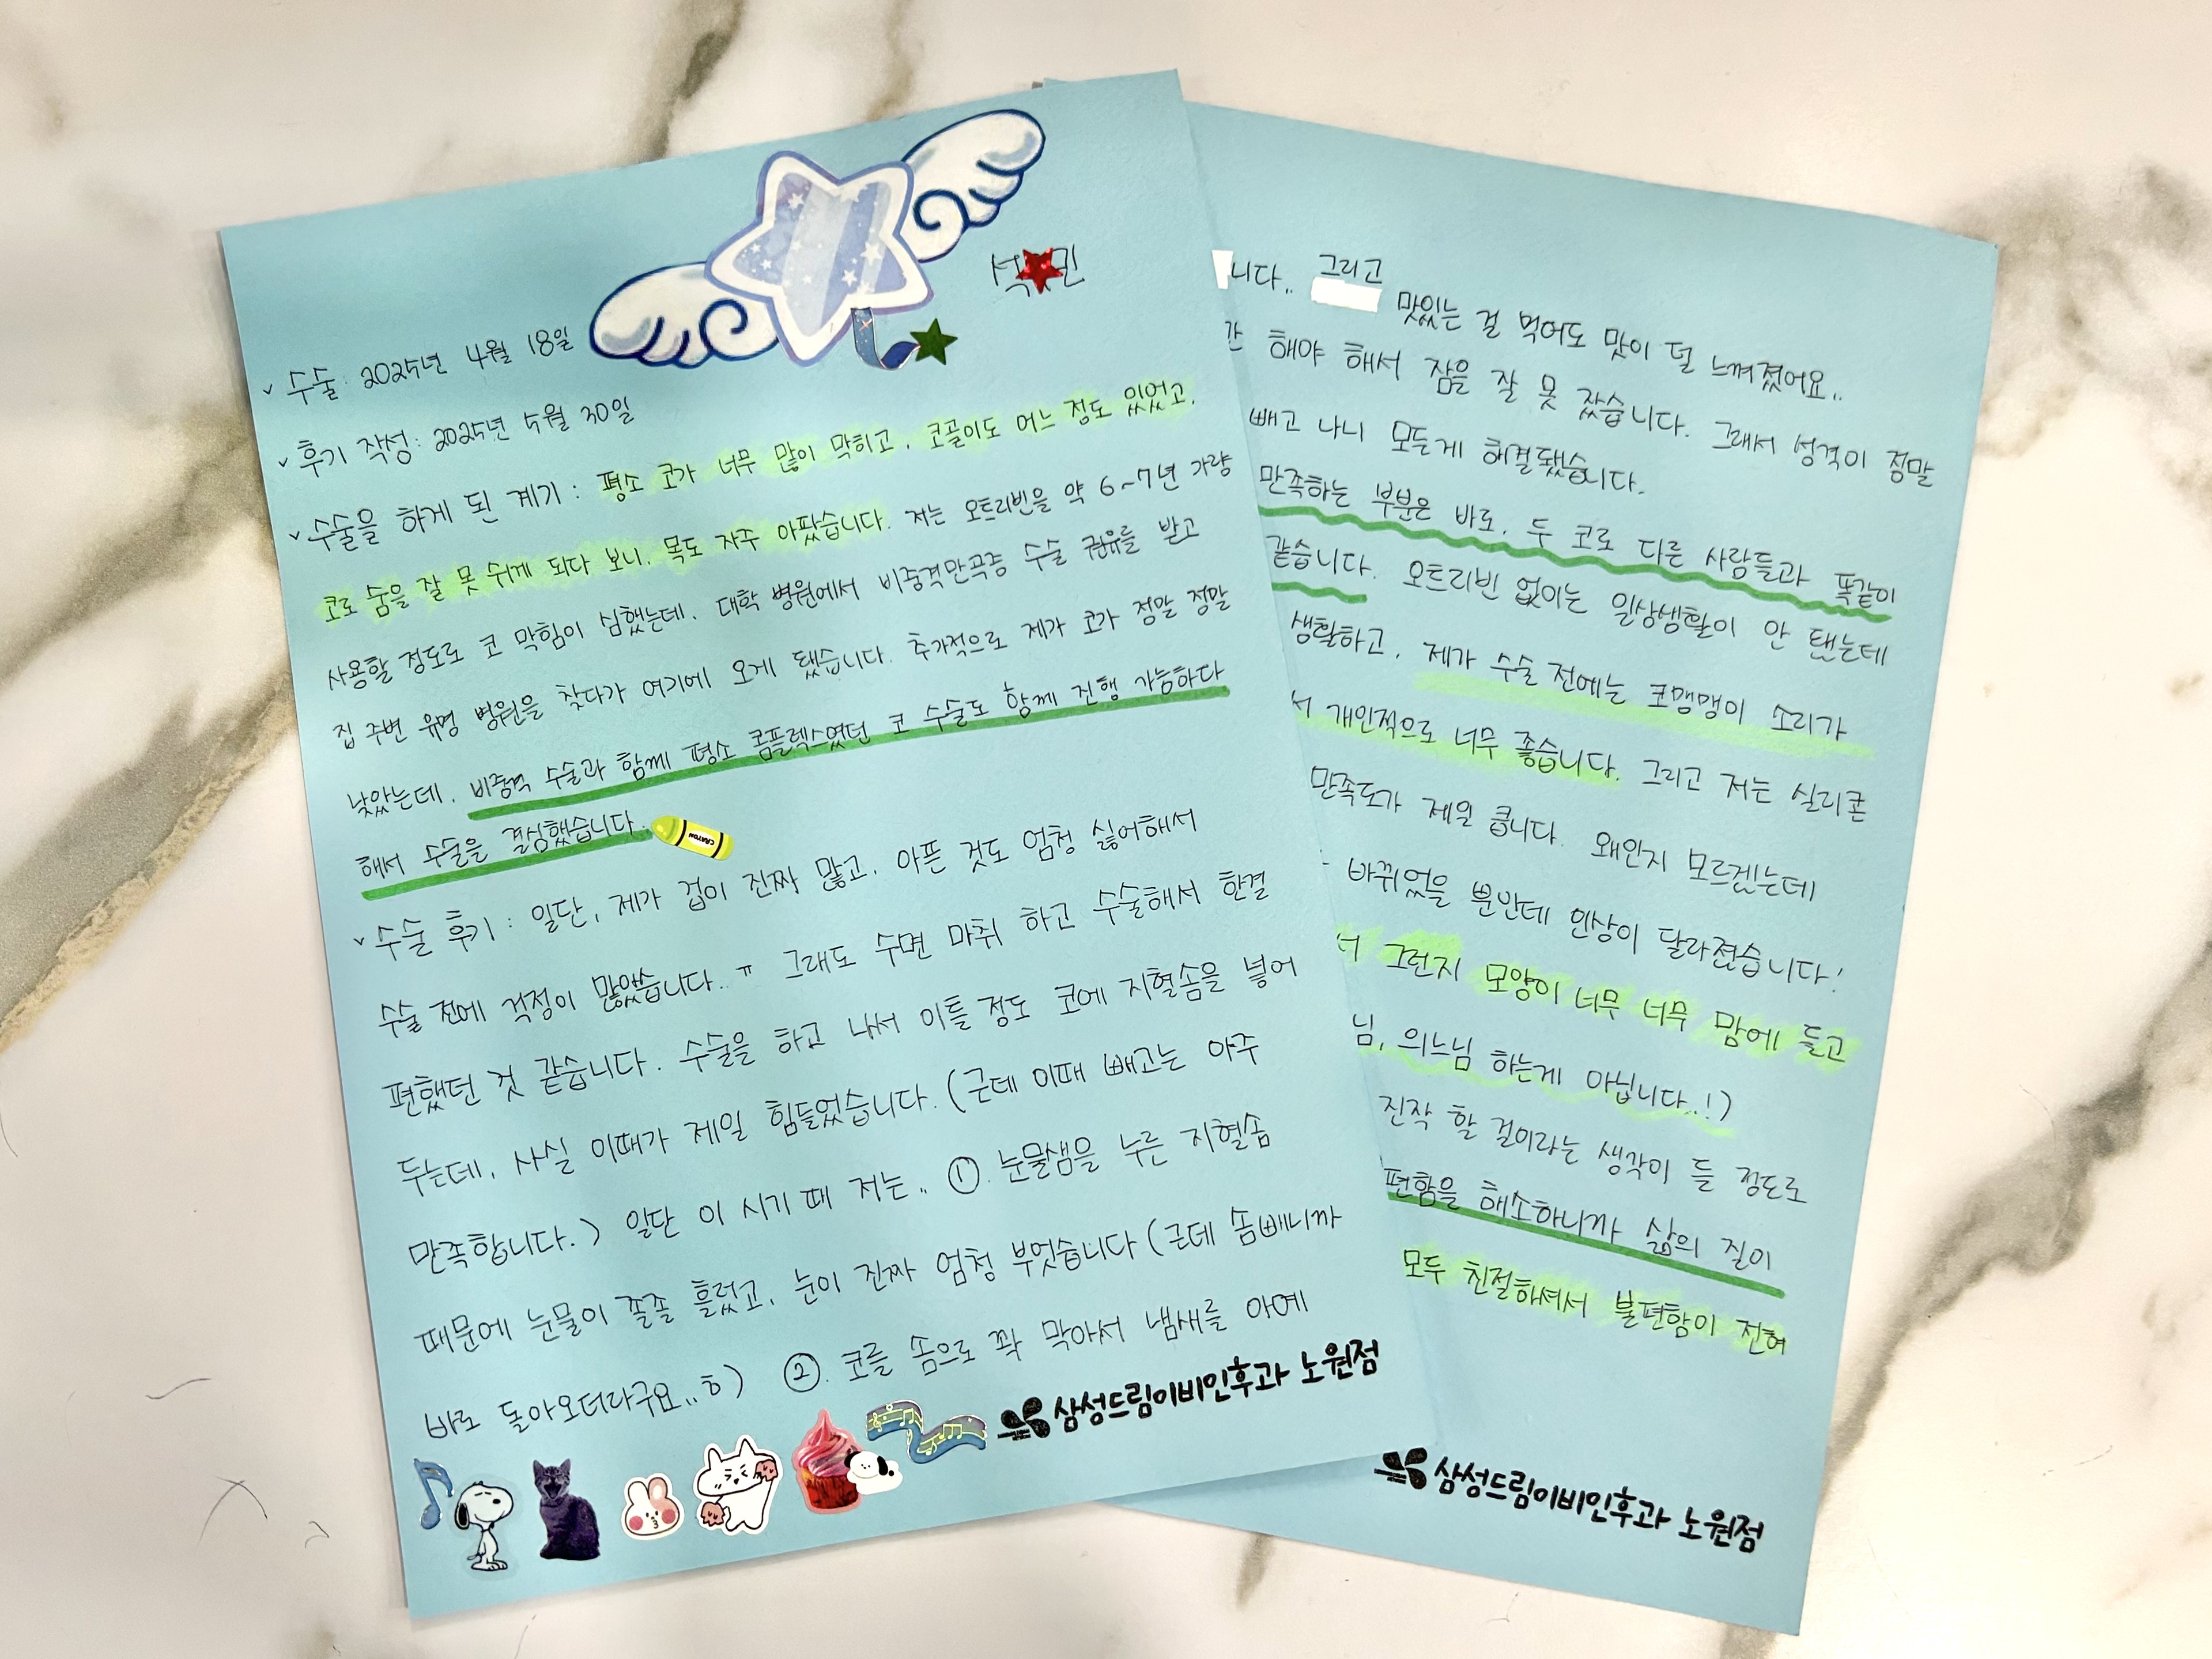 석 민
✓ 수술: 2025년 4월 18일
✓ 후기 작성: 2025년 5월 30일
✓ 수술을 하게 된 계기 : 평소 코가 너무 많이 막히고, 코골이도 어느 정도 있었고,
코로 숨을 잘 못 쉬게 되다 보니, 목도 자주 아팠습니다. 저는 오트리빈을 약 6~7년 가량
사용할 정도로 코 막힘이 심했는데, 대학 병원에서 비중격만곡증 수술 권유를 받고
집 주변 유명 병원을 찾다가 여기에 오게 됐습니다. 추가적으로 제가 코가 정말 정말
낮았는데, 비중격 수술과 함께 평소 콤플렉스였던 코 수술도 함께 진행 가능하다
해서 수술을 결심했습니다..
CRAYON
✓ 수술 후기 : 일단, 제가 겁이 진짜 많고, 아픈 것도 엄청 싫어해서
수술 전에 걱정이 많았습니다..ㅠ 그래도 수면 마취 하고 수술해서 한결
편했던 것 같습니다. 수술을 하고 나서 이틀 정도 코에 지혈솜을 넣어
두는데, 사실 이때가 제일 힘들었습니다. (근데 이때 빼고는 아주
만족합니다.) 일단 이 시기 때 저는.. ①. 눈물샘을 누른 지혈솜
때문에 눈물이 줄줄 흘렀고, 눈이 진짜 엄청 부었습니다 (근데 솜빼니까
바로 돌아오더라구요..ㅎ) ②. 코를 솜으로 꽉 막아서 냄새를 아예
삼성드림이비인후과 노원점
니다.. 그리고 맛있는 걸 먹어도 맛이 덜 느껴졌어요..
해야 해서 잠을 잘 못 잤습니다. 그래서 성격이 정말
빼고 나니 모든게 해결됐습니다.
만족하는 부분은 바로, 두 코로 다른 사람들과 똑같이
같습니다. 오트리빈 없이는 일상생활이 안 됐는데
생활하고, 제가 수술 전에는 코맹맹이 소리가
서 개인적으로 너무 좋습니다. 그리고 저는 실리콘
만족도가 제일 큽니다. 왜인지 모르겠는데
바뀌었을 뿐인데 인상이 달라졌습니다!
서 그런지 모양이 너무 너무 맘에 들고
님, 의느님 하는게 아닙니다..!)
진작 할 걸이라는 생각이 들 정도로
편함을 해소하니까 삶의 질이
모두 친절해셔서 불편함이 전혀
삼성드림이비인후과 노원점